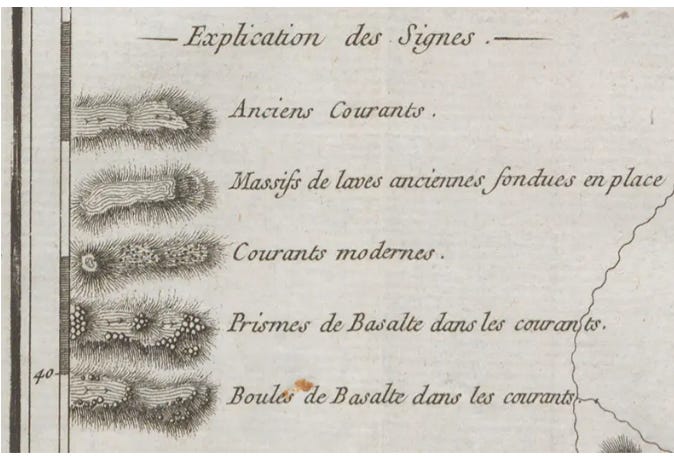 Explication des Signes.
Anciens Courants.
Massifs de laves anciennes fondues en place
Courants modernes.
Prismes de Basalte dans les courants.
40
Boules de Basalte dans les courants